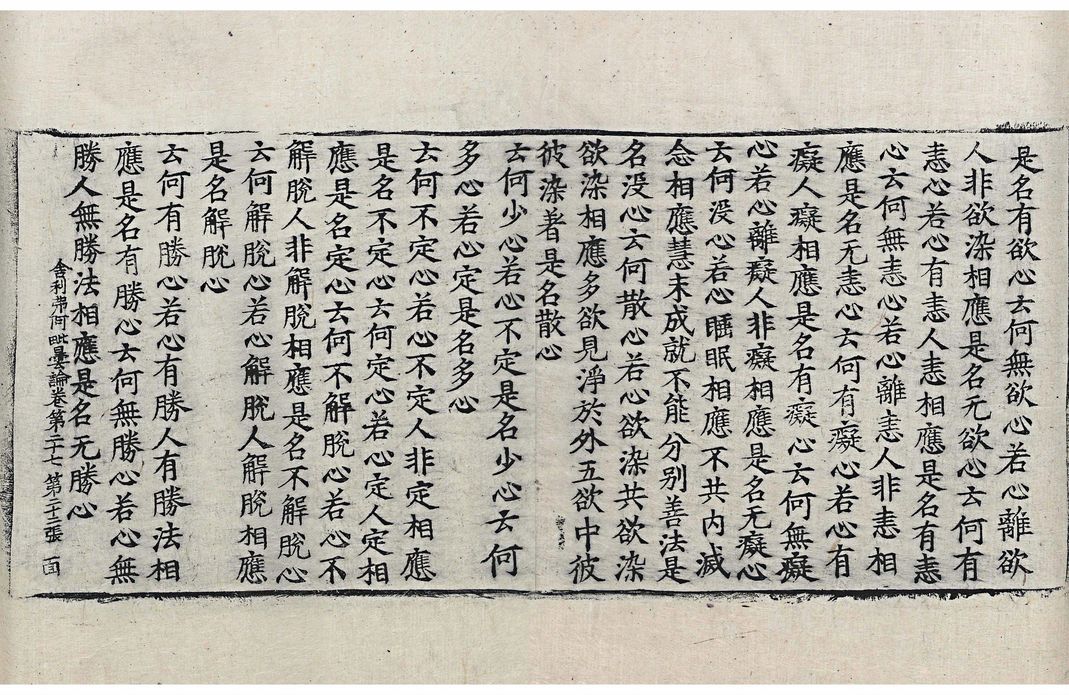 是名有欲心云何無欲心若心離欲
人非欲染相應是名无欲心云何有
恚心若心有恚人恚相應是名有恚
心云何無恚心若心離恚人非恚相
應是名无恚心云何有癡心若心有
癡人癡相應是名有癡心云何無癡
心若心離癡人非癡相應是名无癡心
云何没心若心睡眠相應不共内滅
念相應慧未成就不能分别善法是
名没心云何散心若心欲染共欲染
欲染相應多欲見淨於外五欲中彼
彼染著是名散心
云何少心若心不定是名少心云何
多心若心定是名多心
云何不定心若心不定人非定相應
是名不定心云何定心若心定人定相
應是名定心云何不解脫心若心不
解脫人非解脫相應是名不解脫心
云何解脫心若心解脫人解脫相應
是名解脫心
云何有勝心若心有勝人有勝法相
應是名有勝心云何無勝心若心無
勝人無勝法相應是名无勝心
舍利弗阿毗曇論卷第二十七 第二十二張